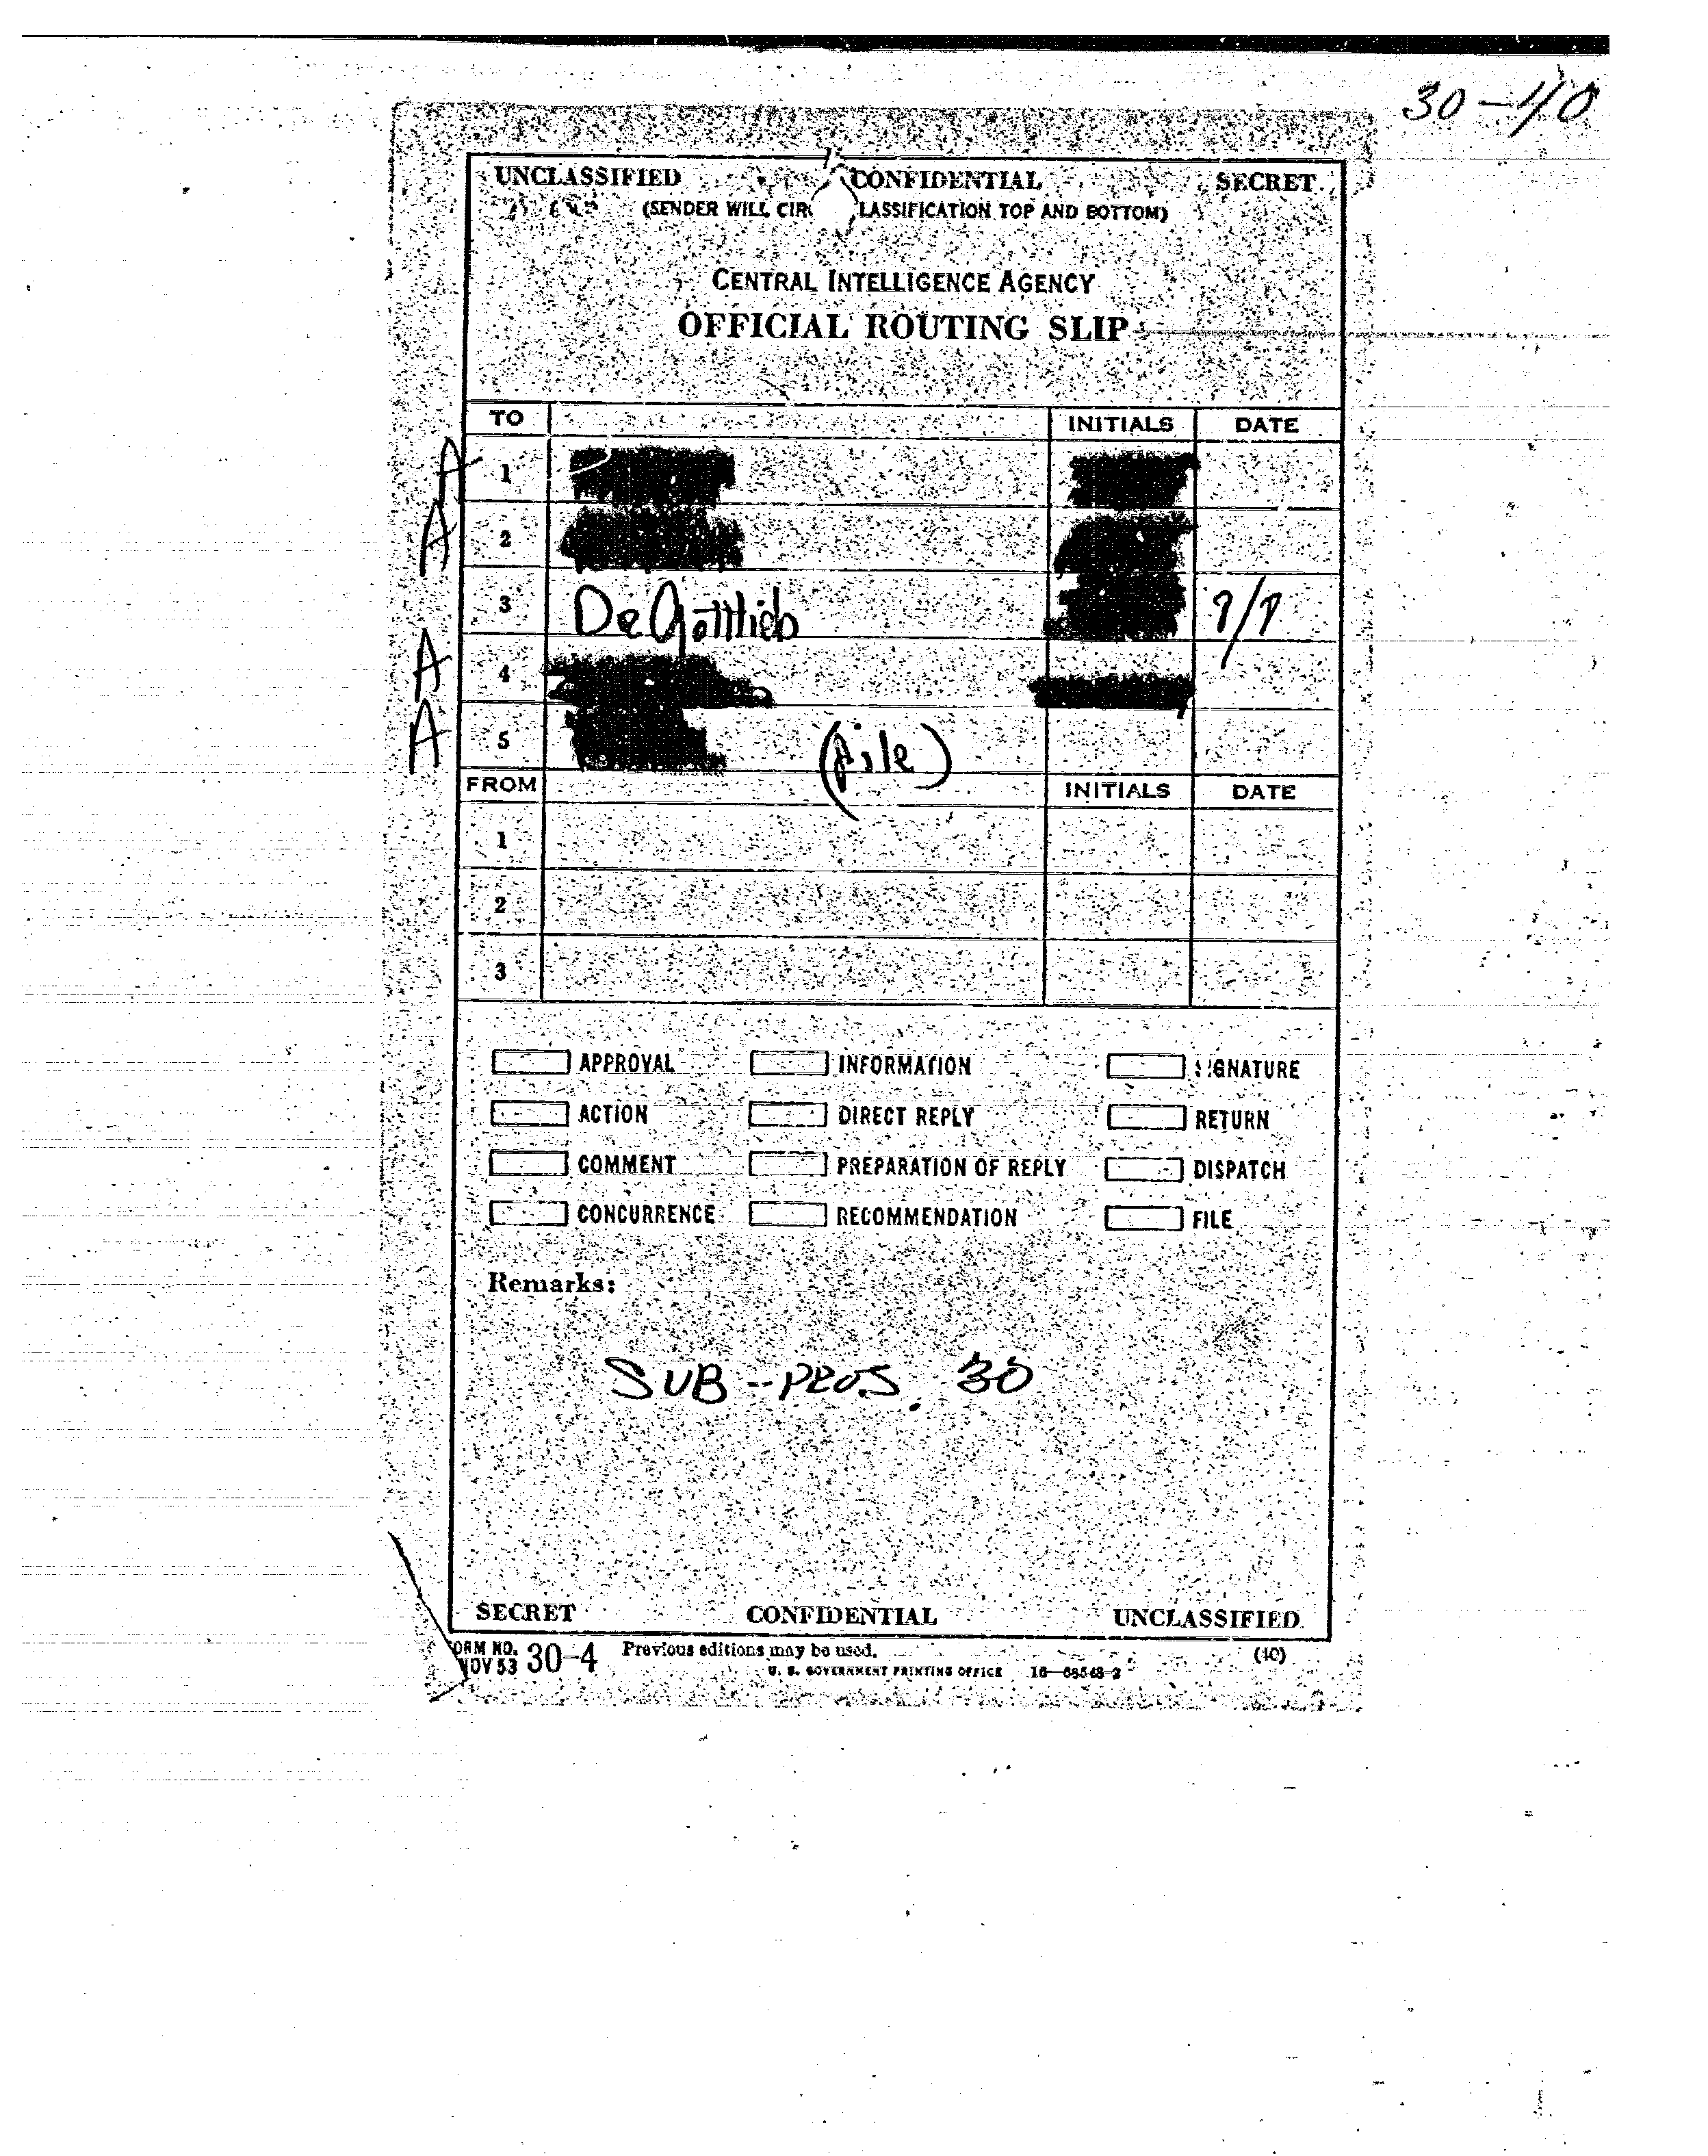 30-40
UNCLASSIFIED CONFIDENTIAL SECRET
(SENDER WILL CIR LASSIFICATION TOP AND BOTTOM)
CENTRAL INTELLIGENCE AGENCY
OFFICIAL ROUTING SLIP
TO INITIALS DATE
A 1
A 2
3 Dr Gottlieb
A 4
A 5 (file)
FROM INITIALS DATE
1
2
3
APPROVAL INFORMATION SIGNATURE
ACTION DIRECT REPLY RETURN
COMMENT PREPARATION OF REPLY DISPATCH
CONCURRENCE RECOMMENDATION FILE
Remarks:
SUB-PROJ. 30
SECRET CONFIDENTIAL UNCLASSIFIED
FORM NO. 30-4 Previous editions may be used. (40)
NOV 53 U. S. GOVERNMENT PRINTING OFFICE 16-68548-2